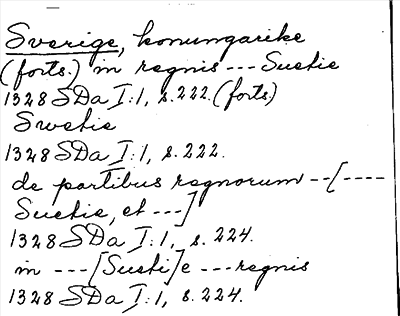 Sverige, konungarike
(forts.) in regnis --- Suetie
1328 SDa I:1, s.222. (forts)
Swetie
1328 SDa I:1, s.222.
de partibus regnorum --[----
Suetie, et ---]
1328 SDa I:1, s.224.
in ---[Sueti]e --- regnis
1328 SDa I:1, s.224.